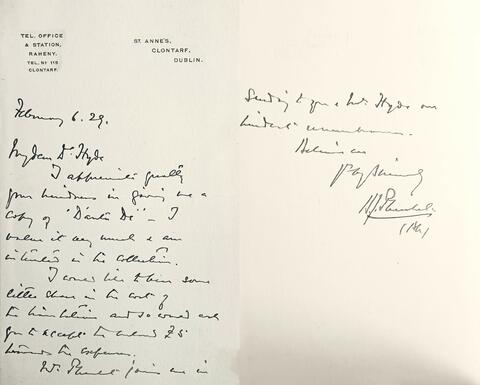 TEL. OFFICE
& STATION,
RAHENY.
TEL. Nº 115
CLONTARF.
ST. ANNE'S,
CLONTARF,
DUBLIN.
February 6. 29.
My dear Dr Hyde
I appreciate greatly
your kindness in giving me a
copy of "Dánta Dé" – I
value it very much & am
interested in the collection.
I would like to bear some
little share in the cost of
the production and so would ask
you to accept the enclosed £5
towards the expenses.
Mr. Plunket joins me in
sending to you & Mrs Hyde our
kindest remembrances.
Believe me
Plunket